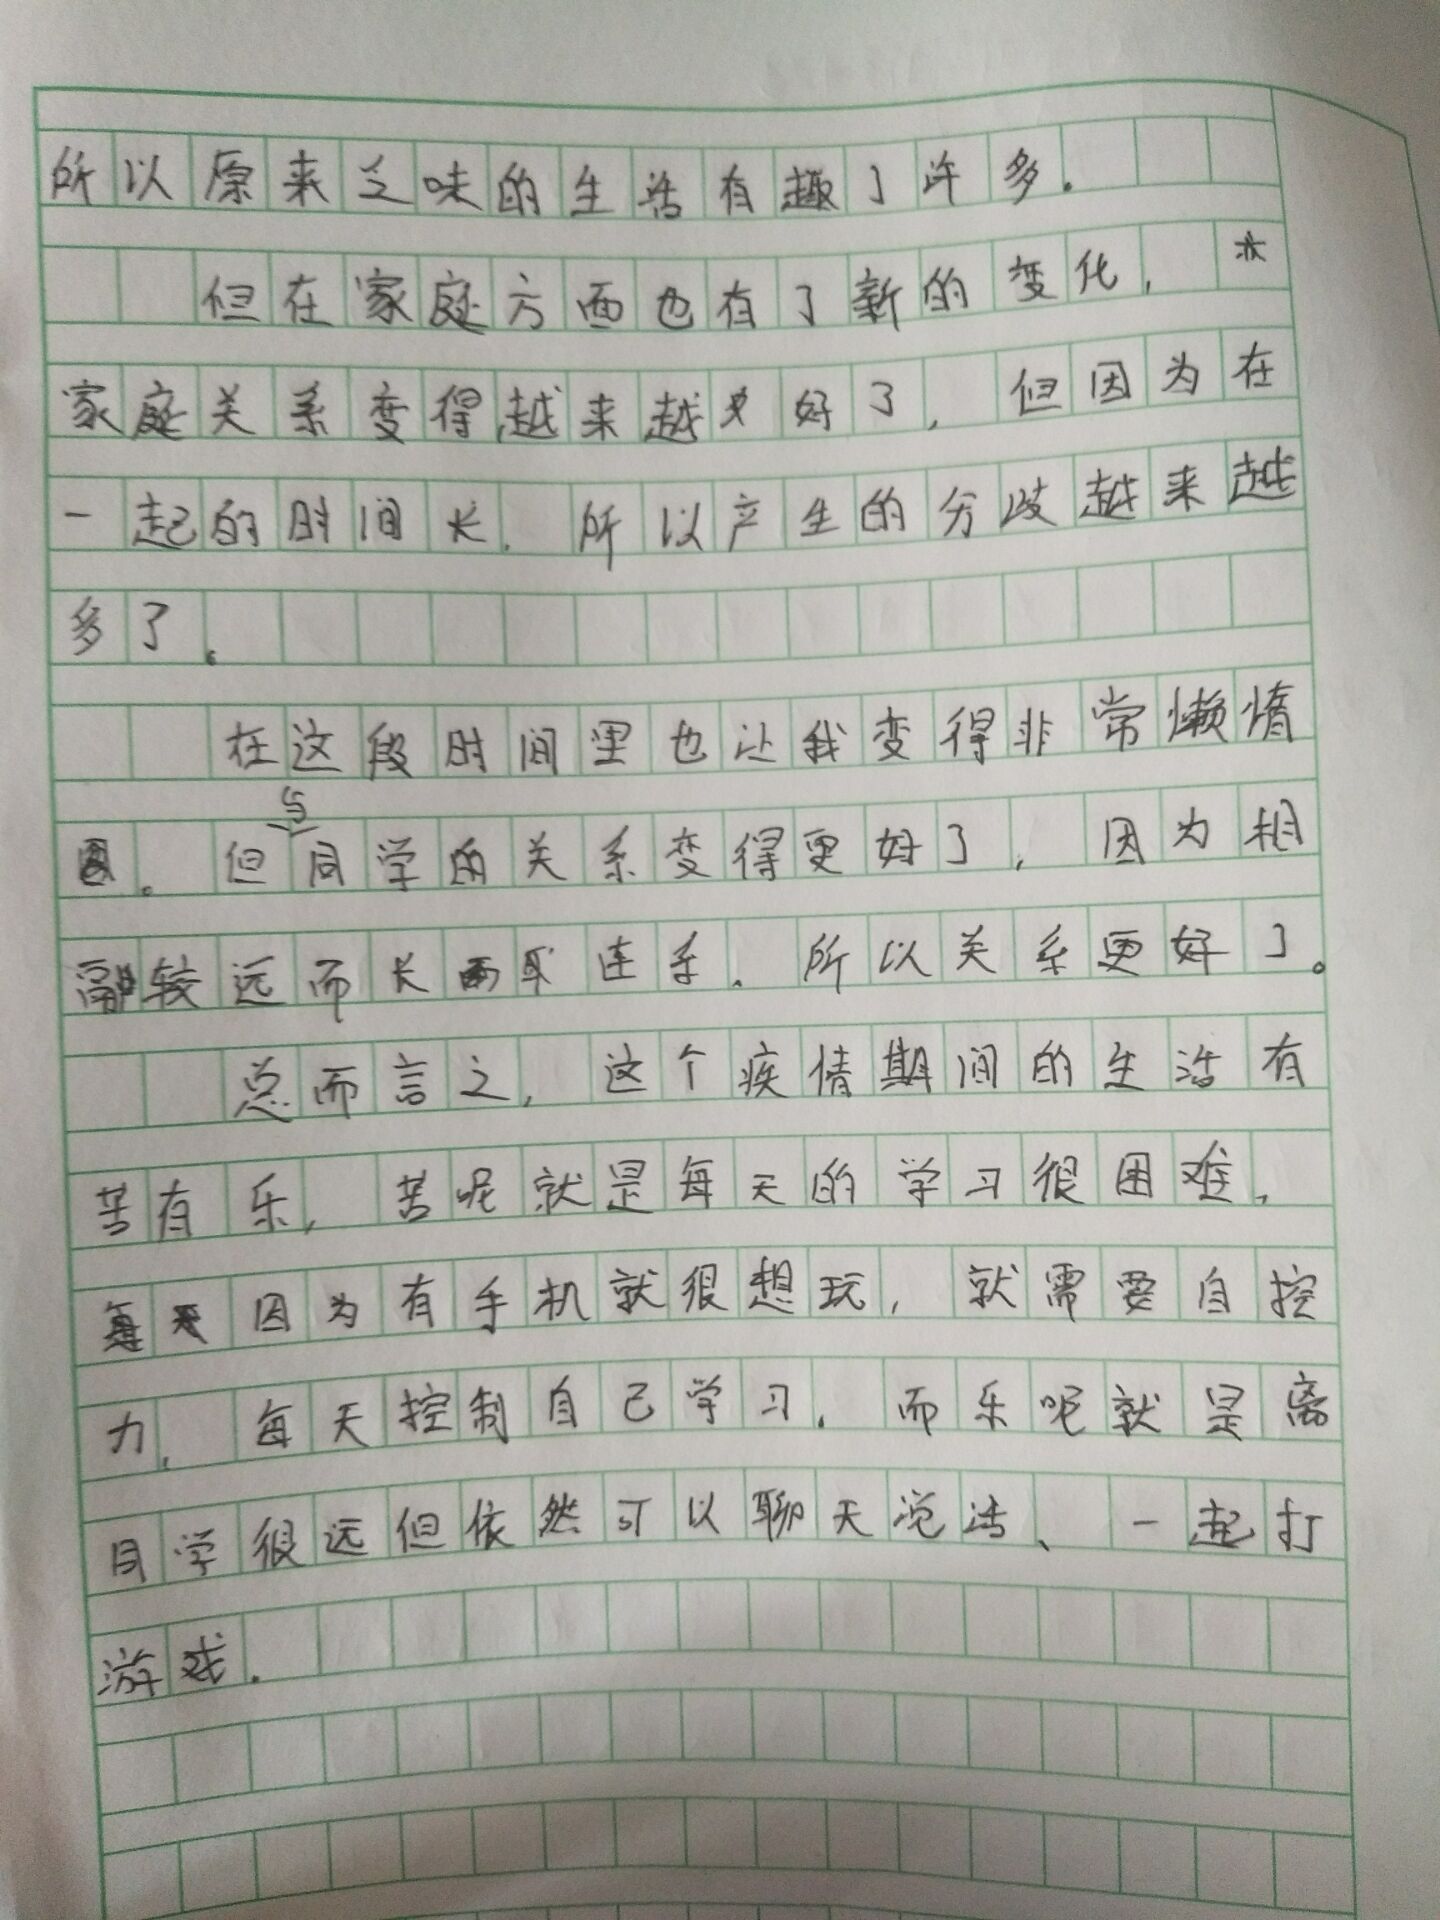 所以原来乏味的生活有趣了许多.
但在家庭方面也有了新的变化,
家庭关系变得越来越好了,但因为在
一起的时间长.所以产生的分歧越来越
多了。
在这段时间里也让我变得非常懒惰
。但与同学的关系变得更好了,因为相
隔较远而长联系.所以关系更好了。
总而言之,这个疾情期间的生活有
苦有乐,苦呢就是每天的学习很困难,
因为有手机就很想玩,就需要自控
力,每天控制自己学习.而乐呢就是离
同学很远但依然可以聊天说话、一起打
游戏.